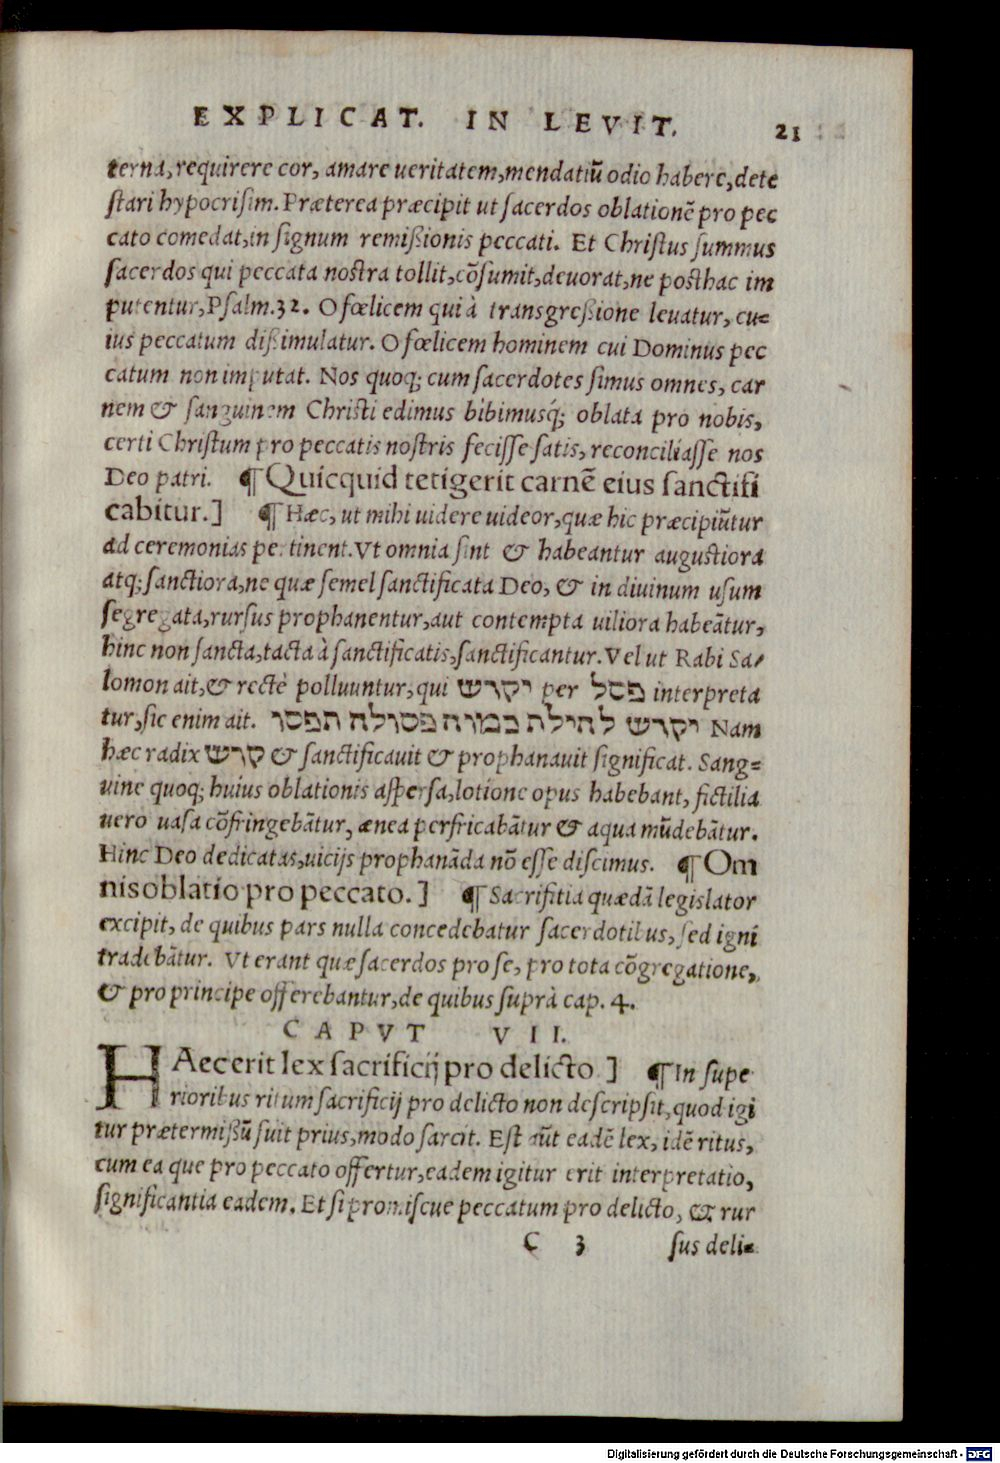 EXPLICAT. IN LEVIT. 21
terna, requirere cor, amare ueritatem, mendatiũ odio habere, dete
stari hypocrisim. Præterea præcipit ut sacerdos oblationẽ pro pec
cato comedat, in signum remißionis peccati. Et Christus summus
sacerdos qui peccata nostra tollit, cõsumit, deuorat, ne posthac im
putentur, Psalm.32. O fœlicem qui à transgreßione leuatur, cu=
ius peccatum dißimulatur. O fœlicem hominem cui Dominus pec
catum non imputat. Nos quoq; cum sacerdotes simus omnes, car
nem & sanguinem Christi edimus bibimusq́; oblata pro nobis,
certi Christum pro peccatis nostris fecisse satis, reconciliasse nos
Deo patri. ¶Quicquid tetigerit carnẽ eius sanctifi
cabitur.] ¶Hæc, ut mihi uidere uideor, quæ hic præcipiũtur
ad ceremonias pertinent. Vt omnia sint & habeantur augustiora
atq; sanctiora, ne quæ semel sanctificata Deo, & in diuinum usum
segregata, rursus prophanentur, aut contempta uiliora habeãtur,
hinc non sancta, tacta à sanctificatis, sanctificantur. Vel ut Rabi Sa/
lomon ait, & rectè polluuntur, qui יקדש per פסל interpreta
tur, sic enim ait. יקדש להילת כמוה פסולה תפסו Nam
hæc radix קדש & sanctificauit & prophanauit significat. Sang=
uine quoq; huius oblationis aspersa, lotione opus habebant, fictilia
uero uasa cõfringebãtur, ænea perfricabãtur & aqua mũdebãtur.
Hinc Deo dedicatas, uicijs prophanãda nõ esse discimus. ¶Om
nis oblatio pro peccato.] ¶Sacrifitia quædã legislator
excipit, de quibus pars nulla concedebatur sacerdotibus, sed igni
tradebãtur. Vt erant quæ sacerdos pro se, pro tota cõgregatione,
& pro principe offerebantur, de quibus suprà cap. 4.
CAPVT VII.
HAec erit lex sacrificij pro delicto ] ¶In supe
rioribus ritum sacrificij pro delicto non descripsit, quod igi
tur prætermißũ fuit prius, modo sarcit. Est aũt eadẽ lex, idẽ ritus,
cum ea que pro peccato offertur, eadem igitur erit interpretatio,
significantia eadem. Et si promiscue peccatum pro delicto, & rur
C 3 sus deli=
Digitalisierung gefördert durch die Deutsche Forschungsgemeinschaft - DFG